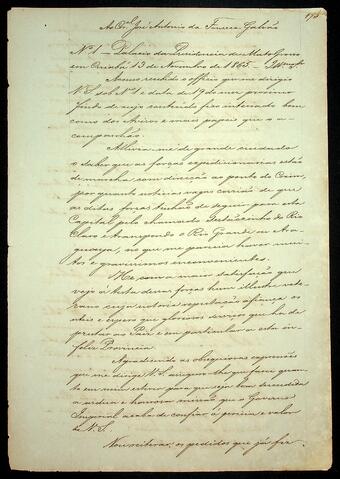 Ao Cel José Antonio da Fonseca Galvão
175
Nº 1 – Palacio da Presidencia de Mato Grosso
em Cuiabá 13 de Novembro de 1865 –
Accuso recebido o officio que me dirigio
V. S. sob Nº 1 e data de 19 do mez proximo
findo de cujo conteúdo fico inteirado bem
como dos Avisos e mais papeis que o a-
companhão.
Allivia-me de grande cuidado
o saber que as forças expedicionarias estão
de marcha com direcção ao ponto do Coxim,
por quanto noticias vagas corrião de que
as ditas forças tinhão de seguir para esta
Capital pelo chamado do Rio
Claro e transpondo o Rio Grande ou Ara-
guaya, no que me parecia haver mui-
tos e gravissimos inconvenientes.
He com a maior satisfação que
vejo á testa dessas forças hum illustre vete-
rano cuja notoria reputação afiança os
uteis e espero que gloriosos serviços que ha de
prestar ao Paiz e em particular a esta in-
feliz Provincia
Agradecendo as obsequiosas expressões
que me dirige V. S. asseguro-lhe que farei quan-
to em mim estiver para que seja bem succedida
a ardua e honrosa missão que o Governo
Imperial acaba de confiar á pericia e valor
de V. S.
Vou reiterar os pedidos que já fiz